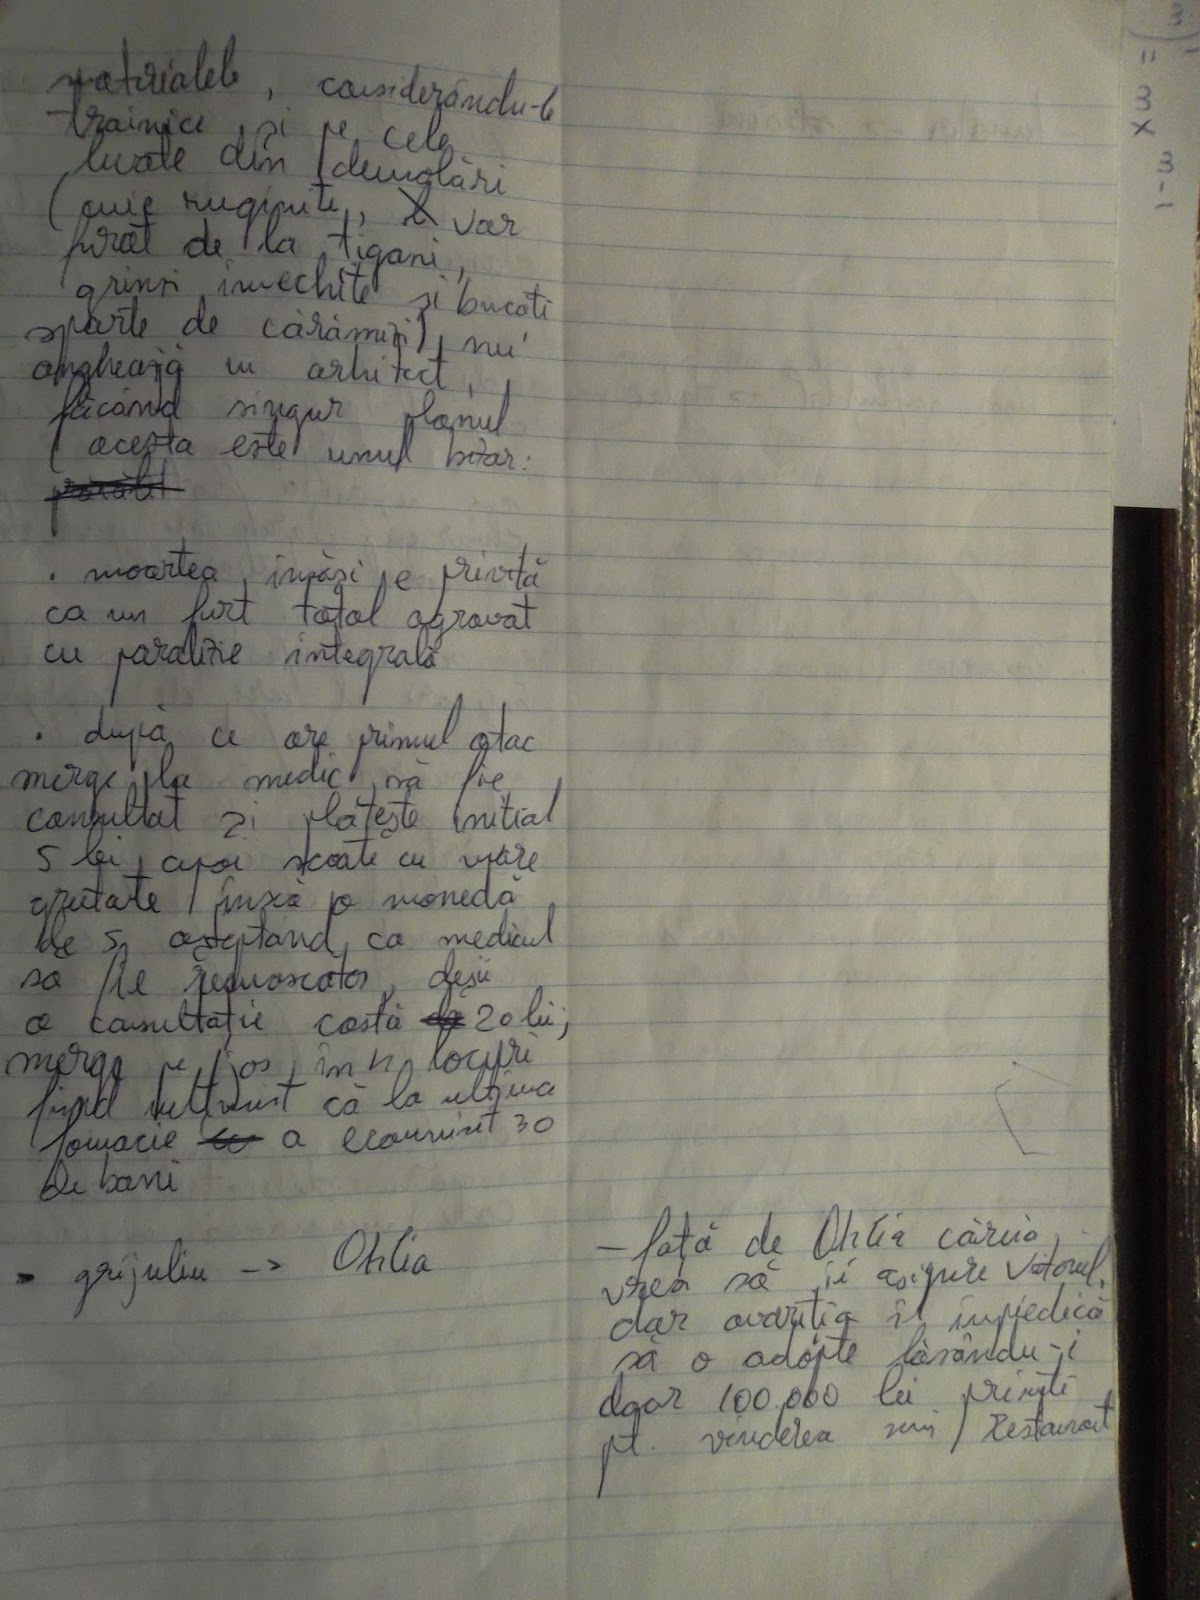 materialele, considerându-le
trainice și pe cele
luate din demolări
(cuie ruginite, var
furat de la țigani,
grinzi învechite și bucăti
sparte de cărămizi), nu
anghează un arhitect,
făcând singur planul
(acesta este unul bizar:
. moartea însăși e privită
ca un furt total agravat
cu paralizie integrală
. după ce are primul atac
merge la medic să fie
consultat și plătește initial
5 lei, apoi scoate cu mare
greutate însă o monedă
de 5, așteptând ca medicul
să fie
o consultație costă 20 lei;
merge pe jos în n locuri
fiind multumit că la ultima
farmacie a economisit 30
de bani
- grijuliu -> Otilia
- față de Otilia căreia
vrea să îi asigure viitorul,
dar avariția îl împiedică
să o adopte lăsându-i
doar 100.000 lei primiți
pt. vinderea unui restaurant
3
=
3
x
3
-